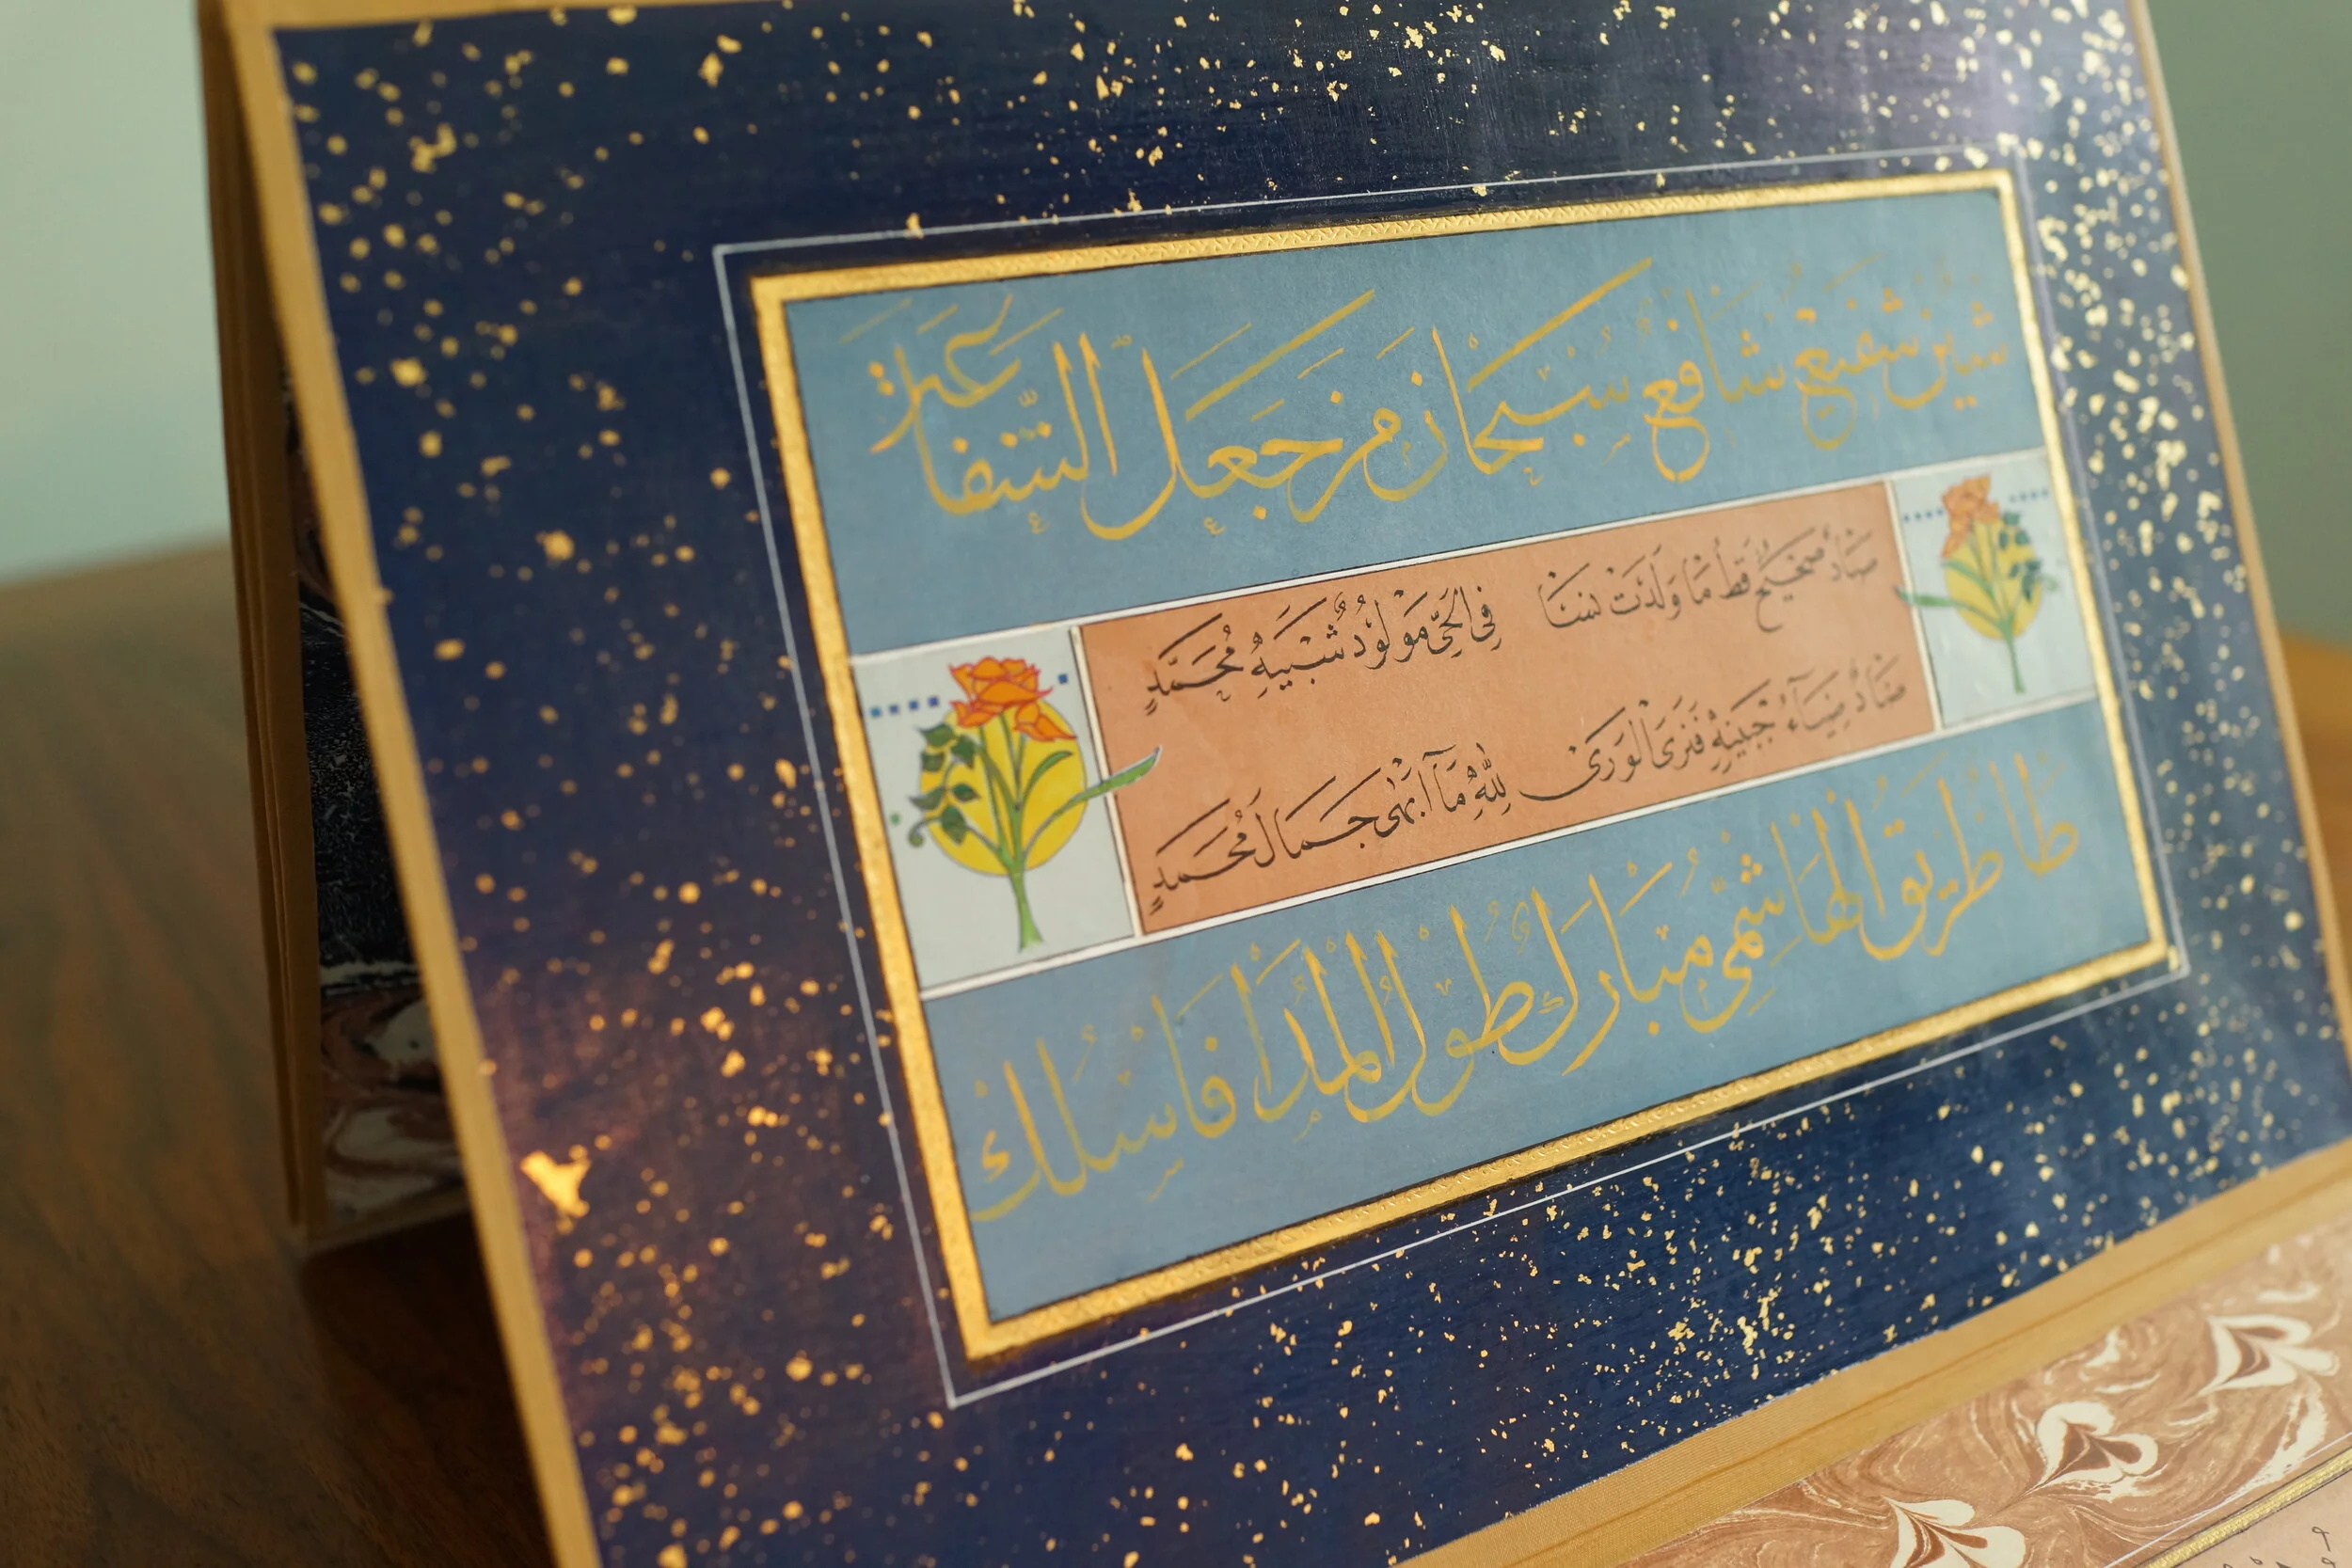 شين شفيع شافع سبحان من جعل الشفاعة
صاد صحيح قط ما ولدت نسا في الحي مولود شبيه محمد
ضاد ضياء جبينه فترى الورى لله ما أبهى جمال محمد
طا طريق الهاشمي مبارك طول المدا فاسلك